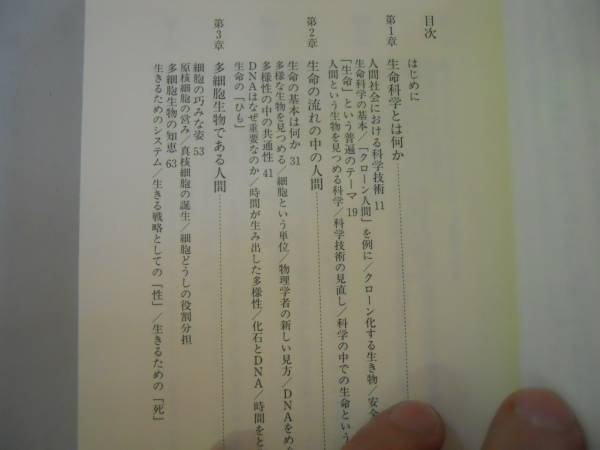 目次
はじめに
第1章 生命科学とは何か
人間社会における科学技術 11
生命科学の基本/「クローン人間」を例に/クローン化する生き物/安全
「生命」という普遍のテーマ 19
人間という生物を見つめる科学/科学技術の見直し/科学の中での生命という
第2章 生命の流れの中の人間
生命の基本は何か 31
多様な生物を見つめる/細胞という単位/物理学者の新しい見方/DNAをめ
多様性の中の共通性 41
DNAはなぜ重要なのか/時間が生み出した多様性/化石とDNA/時間をと
生命の「ひも」
第3章 多細胞生物である人間
細胞の巧みな姿 53
原核細胞の営み/真核細胞の誕生/細胞どうしの役割分担
多細胞生物の知恵 63
生きるためのシステム/生きる戦略としての「性」/生きるための「死」